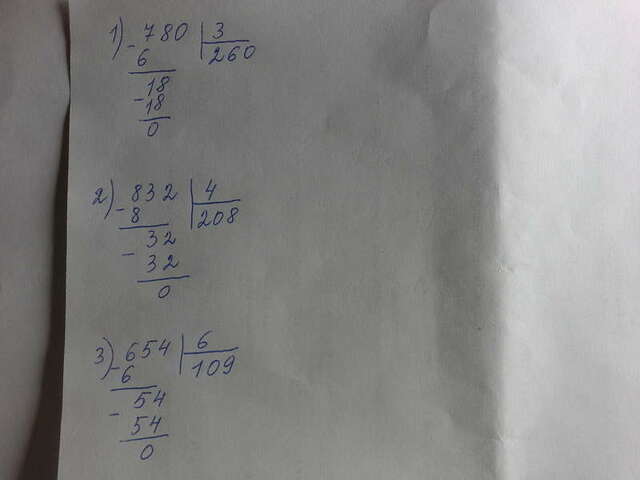 1) - 780 | 3
6 260
18
- 18
0
2) - 832 | 4
8 208
32
- 32
0
3) - 654 | 6
6 109
54
- 54
0